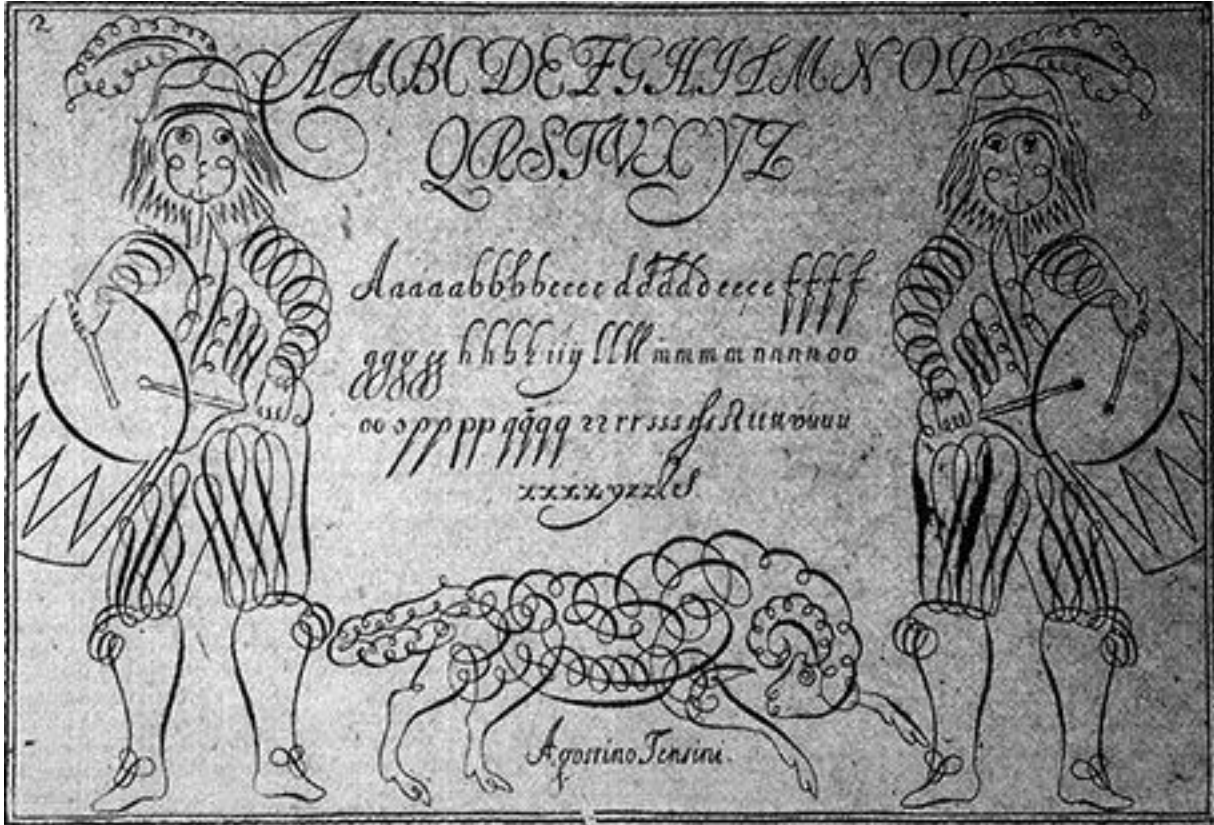 2
AABCDEFGHILMNOP
QRSTVXYZ
Aaaaabbbbcccc dddddeeee ffff
gggg hhhh iiy llll mmmm nnnnoo
oo pppp qqqq rr rr sss ttt uuuu
xxxx yzz
Agostino Tensini.